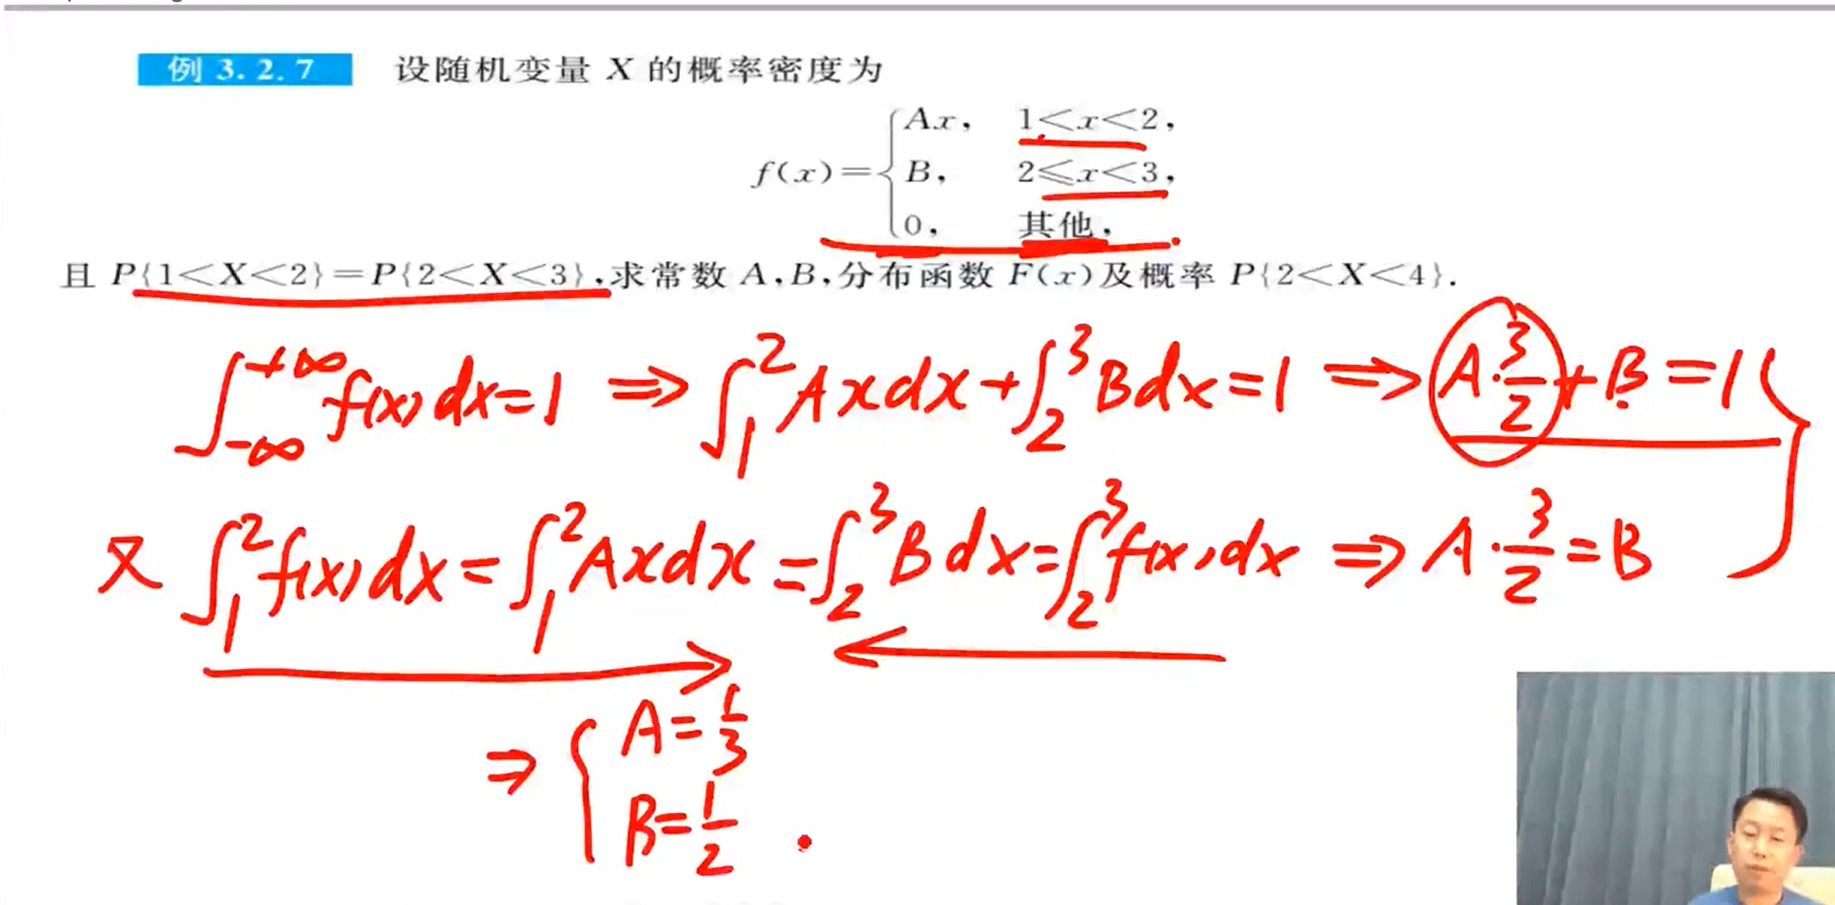 例 3.2.7 设随机变量 X 的概率密度为
f(x)={Ax, 1<x<2,
B, 2⩽x<3,
0, 其他,
且 P{1<X<2}=P{2<X<3},求常数 A,B,分布函数 F(x)及概率 P{2<X<4}.
∫_{-∞}^{+∞} f(x)dx=1 ⇒ ∫_1^2 Axdx+∫_2^3 Bdx=1 ⇒ A·3/2+B=1
又 ∫_1^2 f(x)dx=∫_1^2 Axdx=∫_2^3 Bdx=∫_2^3 f(x)dx ⇒ A·3/2=B
⇒ {A=1/3
B=1/2